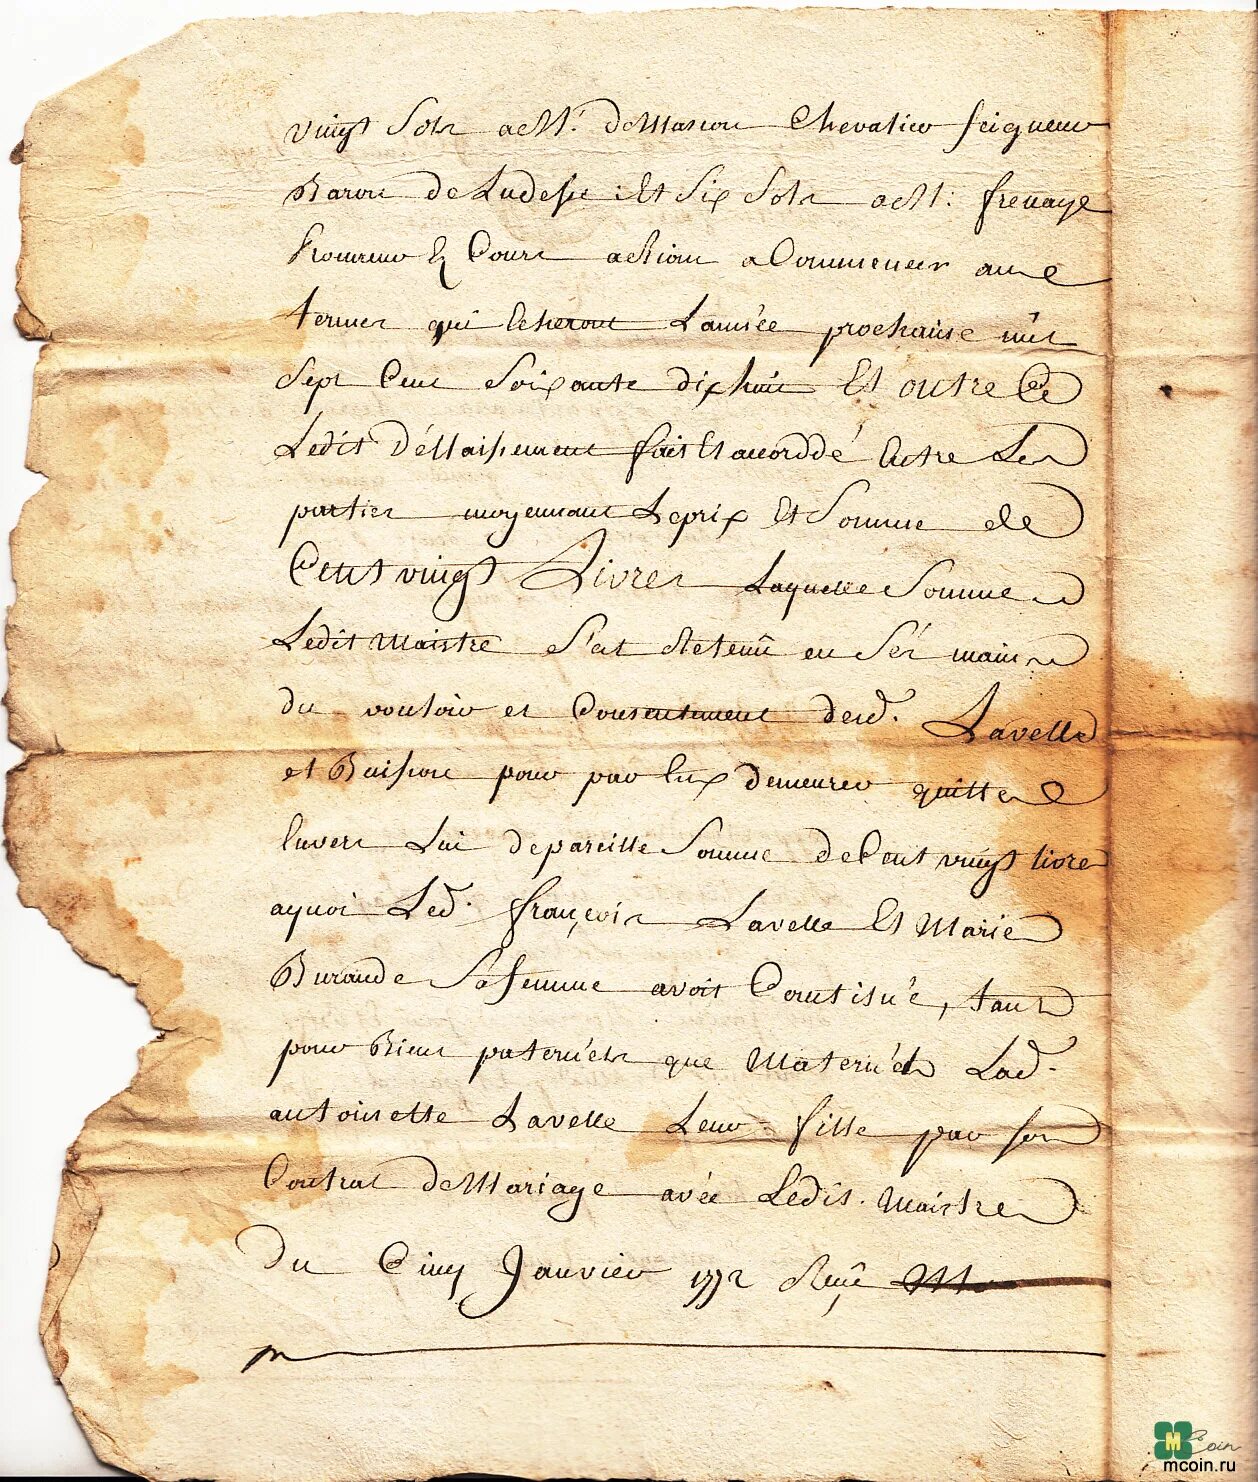 vingt Sols a M.r de Masson Chevalier Seigneur
Baron de Ludesse : Et Six Sols a M : frenaye
Procureur Es Cours a Riom a Commencer aux
termes qui Echeront L'année prochaine mil
Sept Cent Soixante dix huit Et outre Ce
Ledit Délaissement fait Et accorddé Entre Les
parties moyennant Le prix Et Somme de
Cent vingt Livres Laquelle Somme
Ledit Maistre s'est Retenû en Sés mains
du vouloir et Consentement desd. Lavelle
et Buisson pour par Eux demeurer quittes
Envers Lui de pareille Somme de Cent vingt livres
a quoi Led. françois Lavelle Et Marie
Burande Sa femme avoit Contisué, tant
pour Biens paternéls que Maternéls Lad.
antoinette Lavelle Leur fille par son
Contrat de Mariage avéc Lédit. Maistre
Du Cinq Janvier 1772 Reçû
mcoin.ru